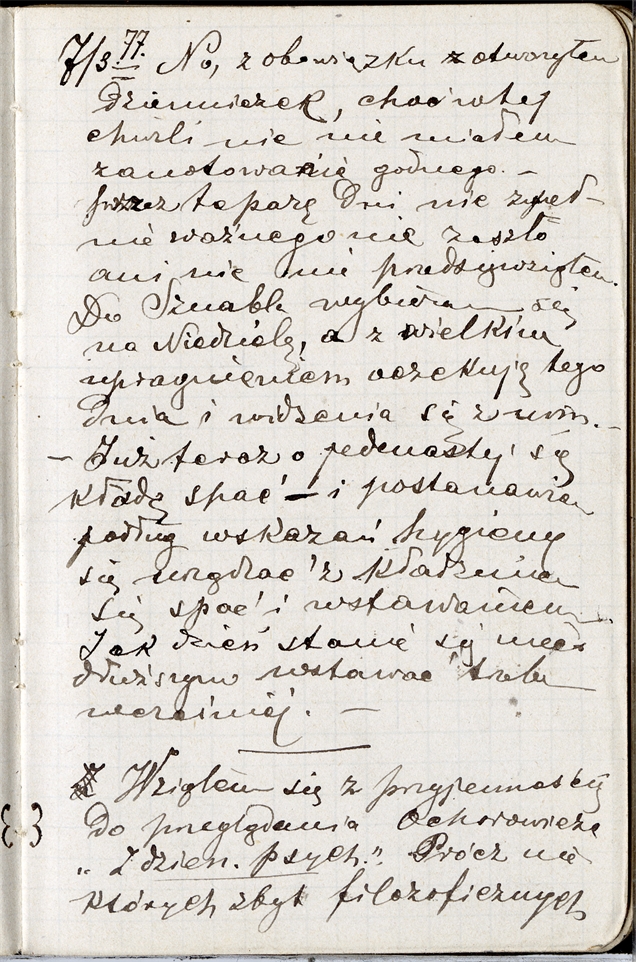 7/3 77. No, z obowiązku otworzyłem
Dzienniczek, choć w tej
chwili nic nie miałem
zanotowania godnego. —
przez te parę dni nic
nie ważnego nie zaszło
ani nic nie przedsięwziąłem.
Do Sznabla wybieram się
na Niedzielę, a z wielkim
upragnieniem oczekuję tego
dnia i widzenia się z nim. —
— Już teraz o jedenastej się
kładę spać — i postanawiam
podług wskazań hygieny
się urządzać z kładzeniem
się spać i wstawaniem.
Jak dzień stanie się nieco
dłuższym wstawać trzeba
wcześniej. —
Wziąłem się z przyjemnością
do przeglądania Ochorowicza
„Z dzien. psych.". Prócz nie
których zbyt filozoficznych